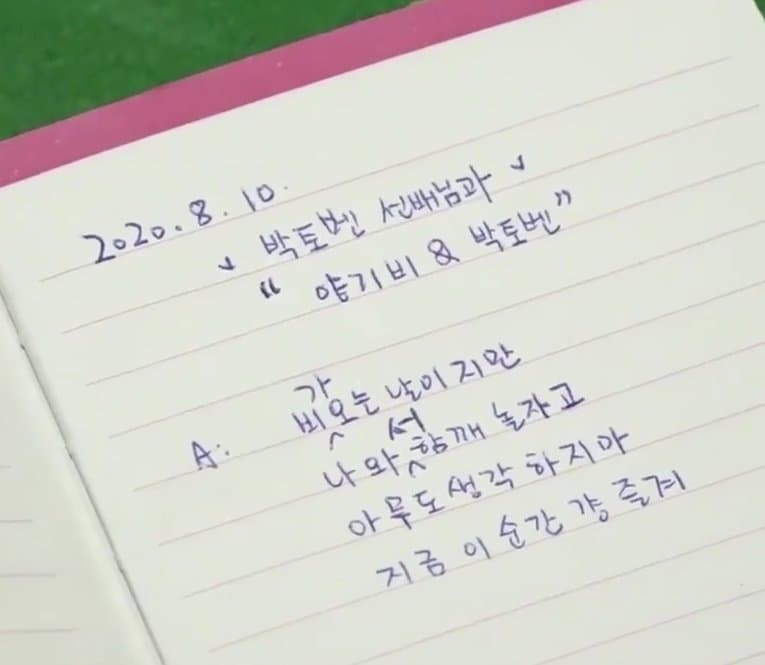 2020. 8. 10.
✓ 박토벤 선배님과 ✓
“ 얄기비 & 박토벤 ”
A: 비가오는 날이지만
나와서 함께 놀자고
아무도 생각 하지마
지금 이 순간 걍 즐겨